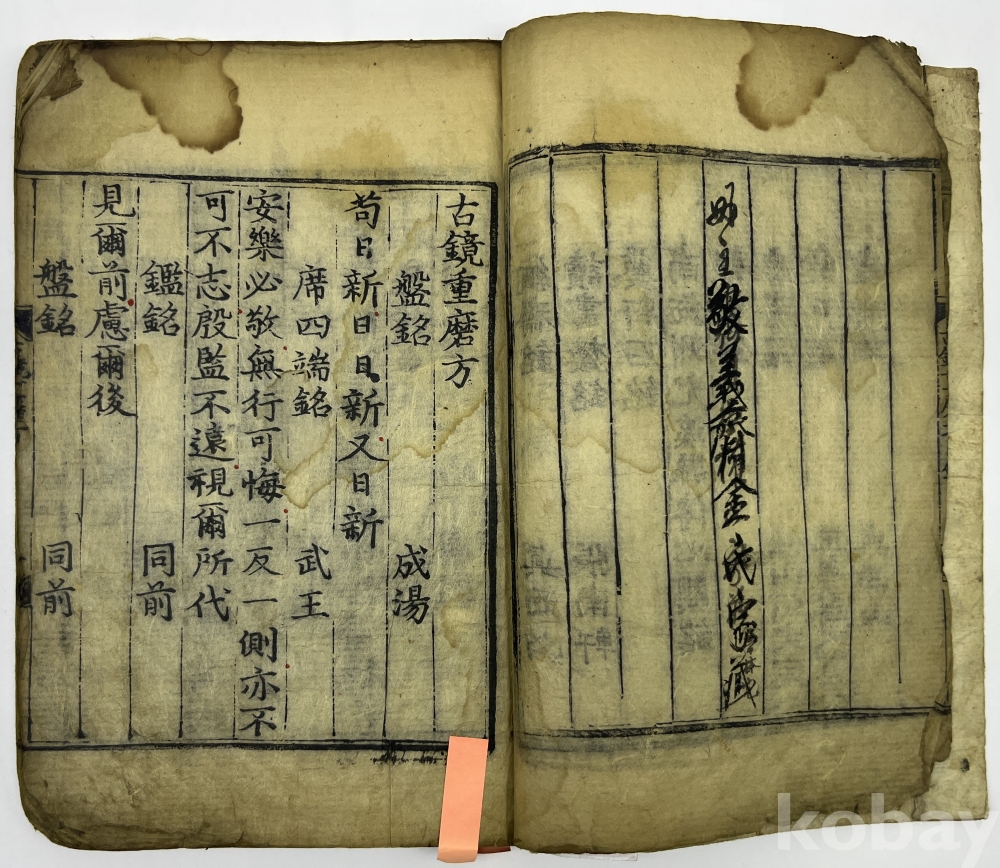 主義金氏藏
古鏡重磨方
盤銘 成湯
苟日新日日新又日新
席四端銘 武王
安樂必敬無行可悔一反一側亦不
可不志殷監不遠視爾所代
鑑銘 同前
見爾前慮爾後
盤銘 同前
kobay